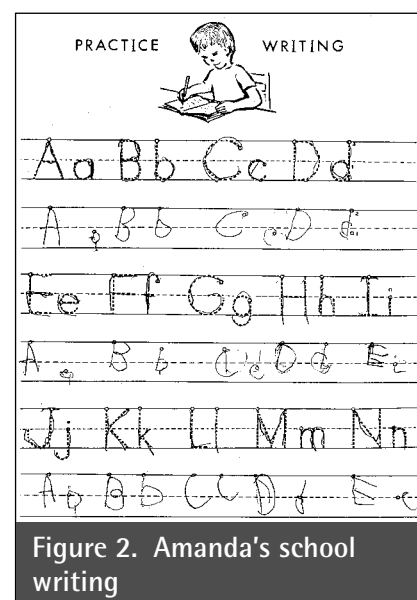 PRACTICE WRITING
A a B b C c D d
A a B b C c D d
E e F f G g H h I i
A a B b C c D d E e
J j K k L l M m N n
A a B b C c D d E e
Figure 2. Amanda's school
writing